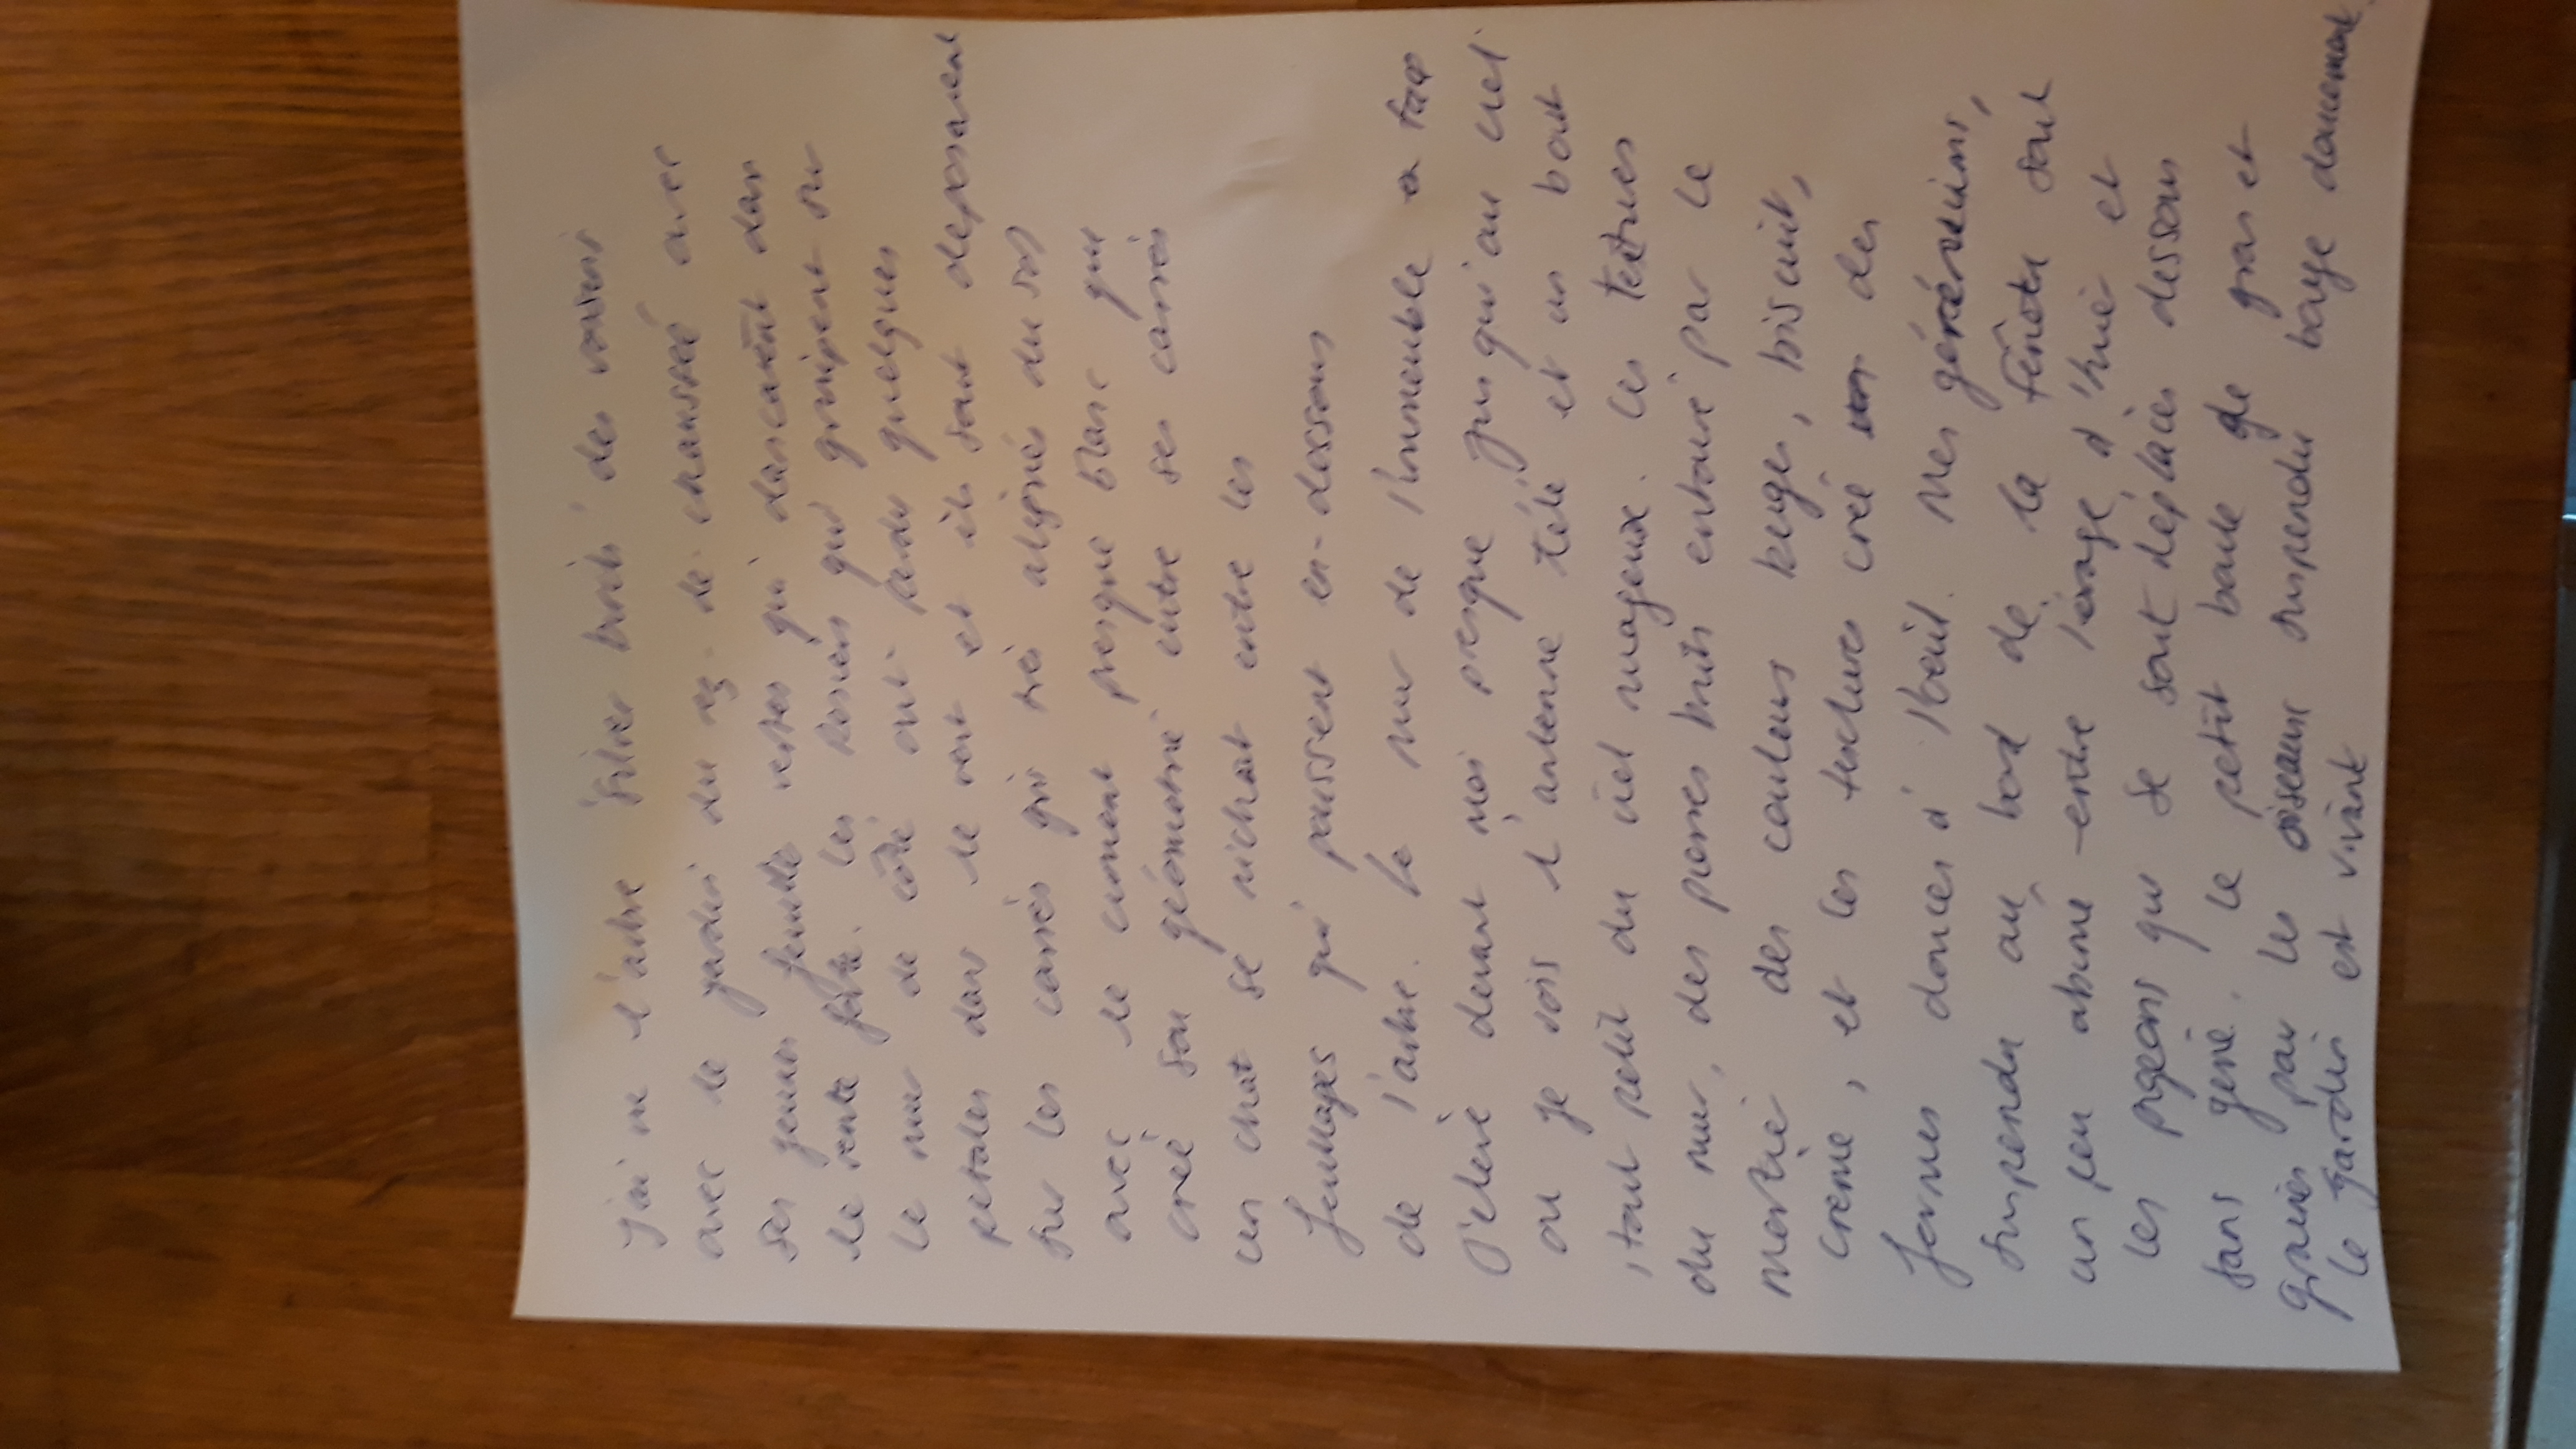 j'ai vu l'arbre des voisins
avec le jardin du rez-de-chaussé avec
ses jeunes feuilles vertes qui dansaient dans
le vente. Les rosiers qui grimpent sur
le mur de côté ont perdu quelques
petales dans le vent et ils sont deposaient
sur les carrés gris très alignés du sol
avec le ciment presque blanc qui
créé son géométrie entre ses carrés
un chat se nichait entre les
feuillages qui poussent en-dessous
de l'arbre. Le mur de l'immeuble en face
s'élevé devant moi presque jusqu'au ciel
ou je vois l'antenne télé et un bout
, tout petit du ciel nuageux. Les textures
du mur, des pierres bruts entouré par le
mortier des couleurs beige, biscuit,
creme, et les textures créé des
formes douces à l'oeil. Mes géraniums,
suspendu au bord de la fenetre sont
un peu abimé entre l'orage d'hier et
les pigeons qui se sont déplacés dessous
sans gène. Le petit boule de gras et
graines par les oiseaux suspendu bouge doucement.
Le jardin est vivant